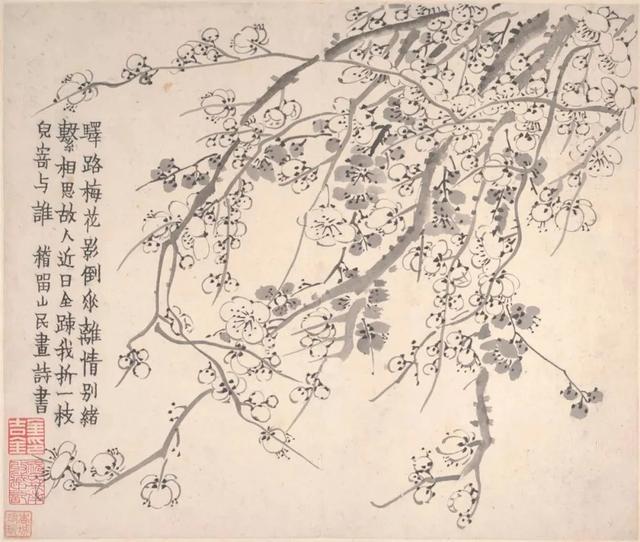 驛路梅花影倒垂離情别緒
繫相思故人近日全疎我折一枝
兒寄与誰 稽留山民畫詩書